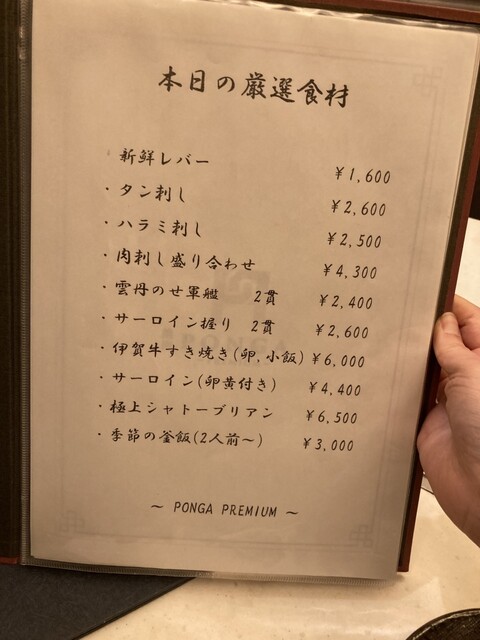 本日の厳選食材
・新鮮レバー ¥1,600
・タン刺し ¥2,600
・ハラミ刺し ¥2,500
・肉刺し盛り合わせ ¥4,300
・雲丹のせ軍艦 2貫 ¥2,400
・サーロイン握り 2貫 ¥2,600
・伊賀牛すき焼き(卵,小飯) ¥6,000
・サーロイン(卵黄付き) ¥4,400
・極上シャトーブリアン ¥6,500
・季節の釜飯(2人前～) ¥3,000
～ PONGA PREMIUM ～